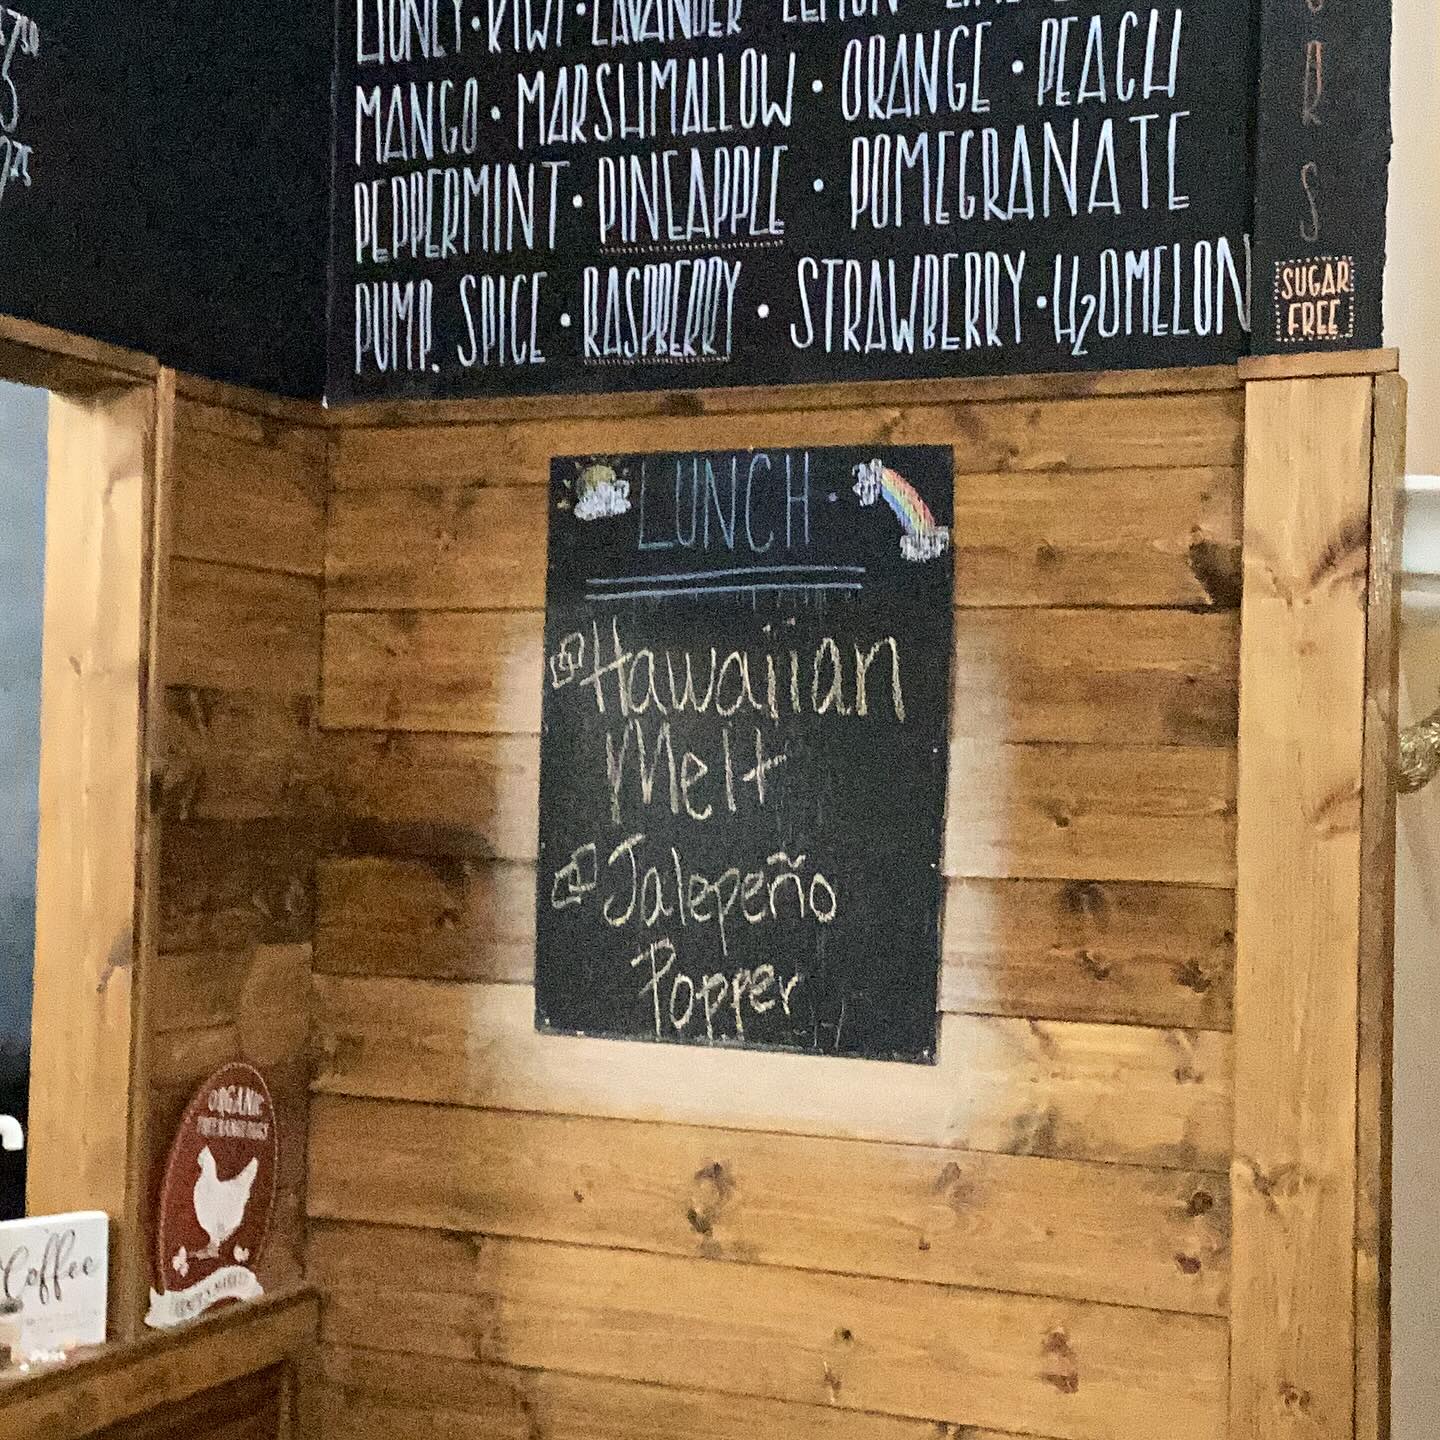 HONEY • KIWI • LAVANDER LEMON
MANGO • MARSHMALLOW • ORANGE • PEACH
PEPPERMINT • PINEAPPLE • POMEGRANATE
PUMP. SPICE • RASPBERRY • STRAWBERRY • H2OMELON
SUGAR
FREE
LUNCH
Hawaiian
Melt
Jalepeño
Popper
ORGANIC
FREE RANGE EGGS
Coffee